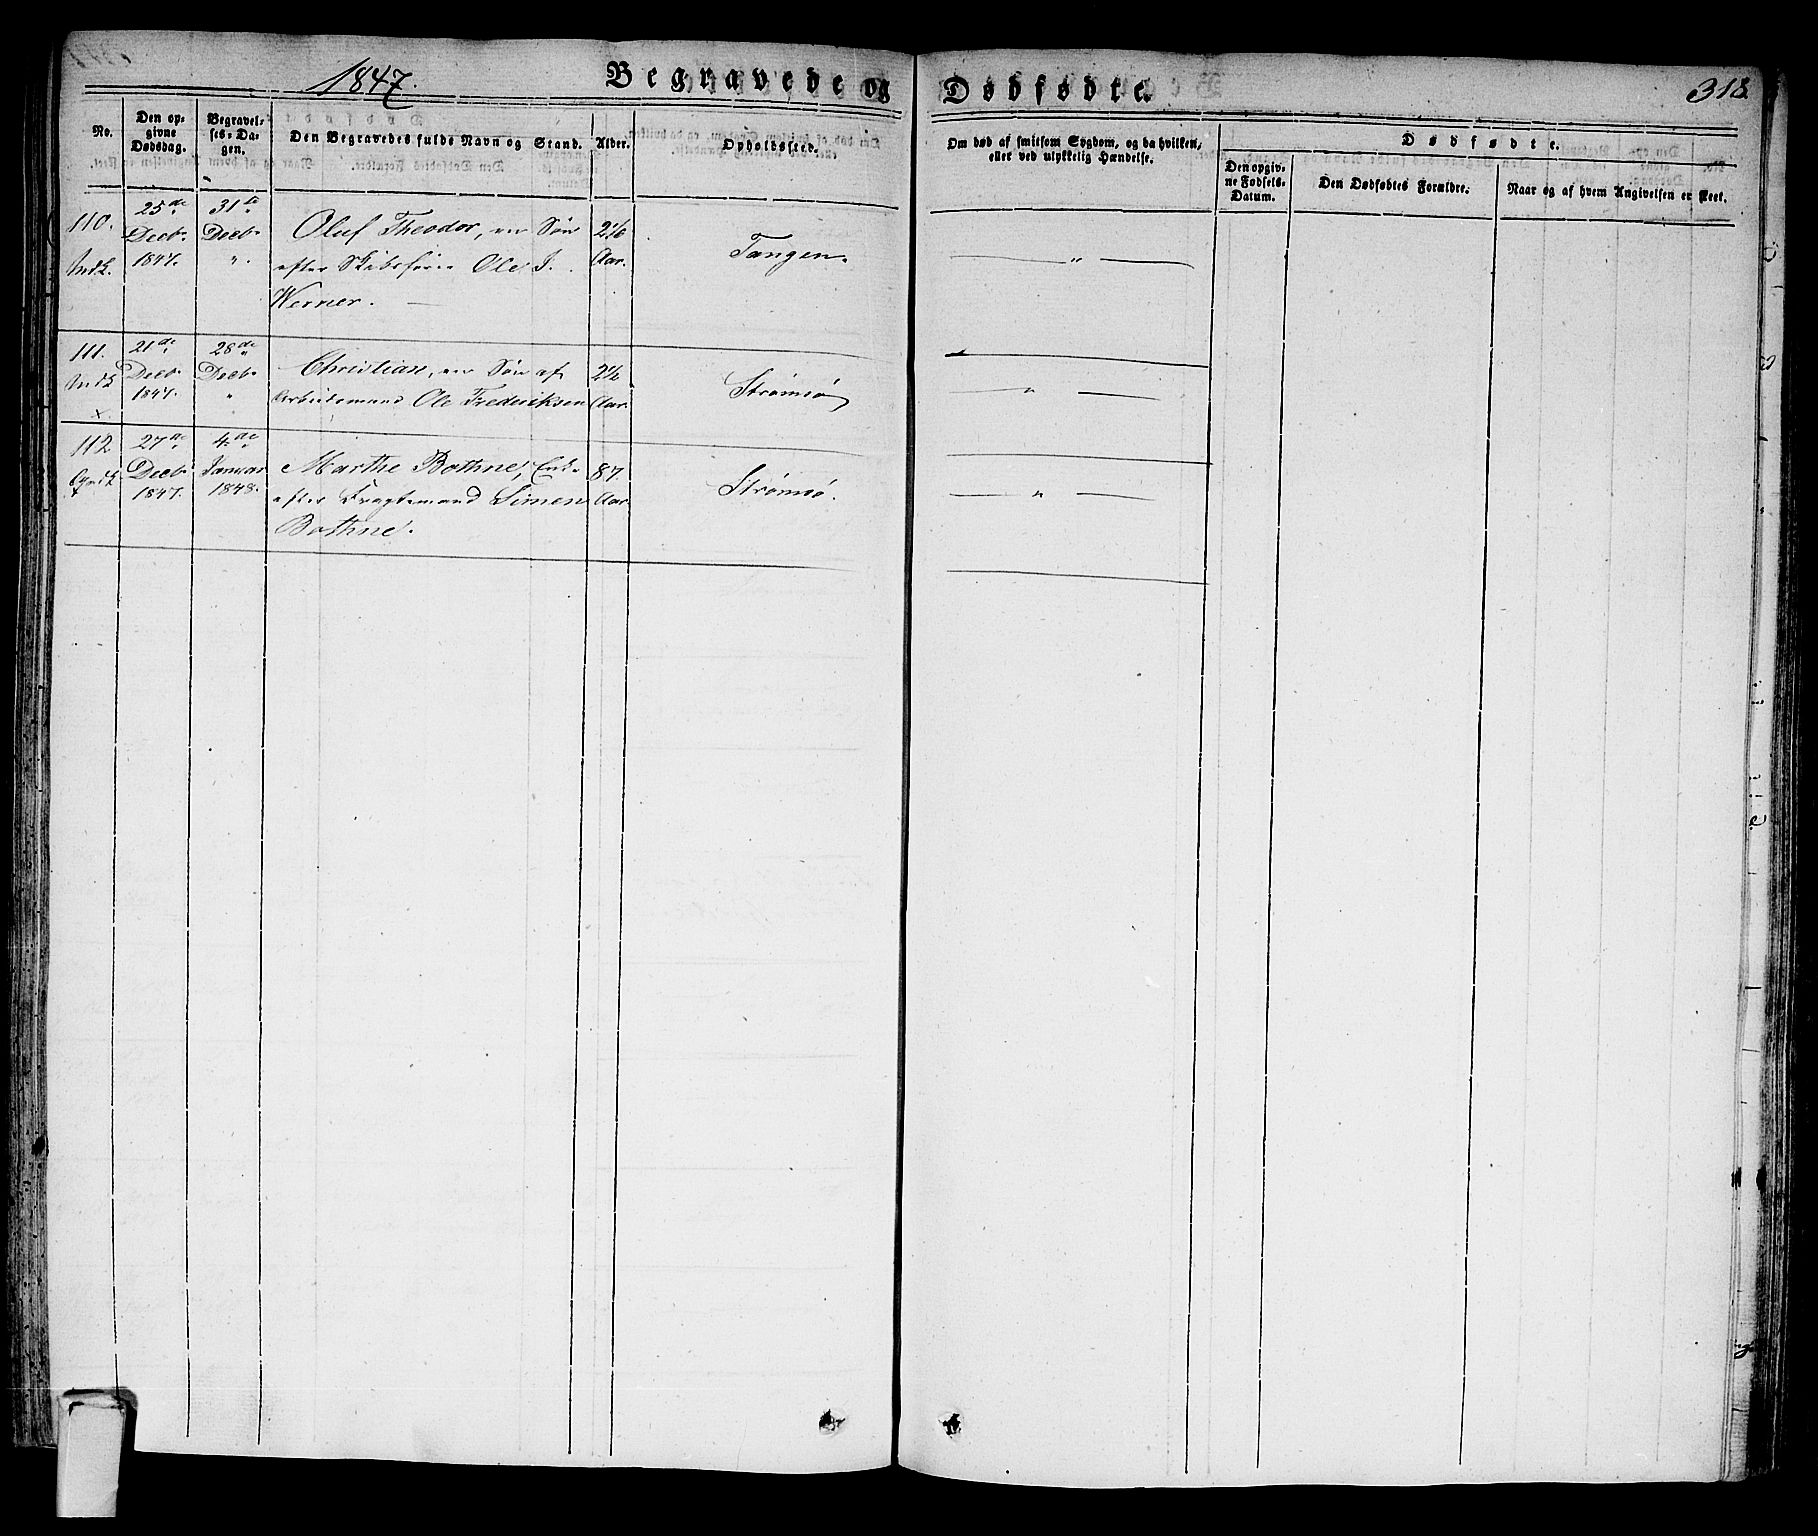 1847.
Begravede og Dødfødte.
318.
No.
Den op-
givne
Dødsdag.
Begravel-
ses-Da-
gen.
Den Begravedes fulde Navn og Stand.
Alder.
Opholdssted.
Om død af smitsom Sygdom, og da hvilken,
eller ved ulykkelig Hændelse.
Dødfødte.
Den opgiv-
ne Fødsels-
Datum.
Den Dødfødtes Forældre.
Naar og af hvem Angivelsen er skeet.
110.
25de
Decbr
1847.
31te
Decbr
"
Oluf Theodor, en Søn
efter Skibsfører Ole J.
Werner.
Aar.
Tangen.
"
111.
21de
Decbr
1847.
28de
Decbr
"
Christian, en Søn af
Arbeidsmand Ole Frederiksen
Aar.
Strømsø
"
112
27de
Decbr
1847.
4de
Januar
1848.
Marthe Bothne, Enke
efter Fragtemand Simen
Bothne.
87.
Aar.
Strømsø.
"